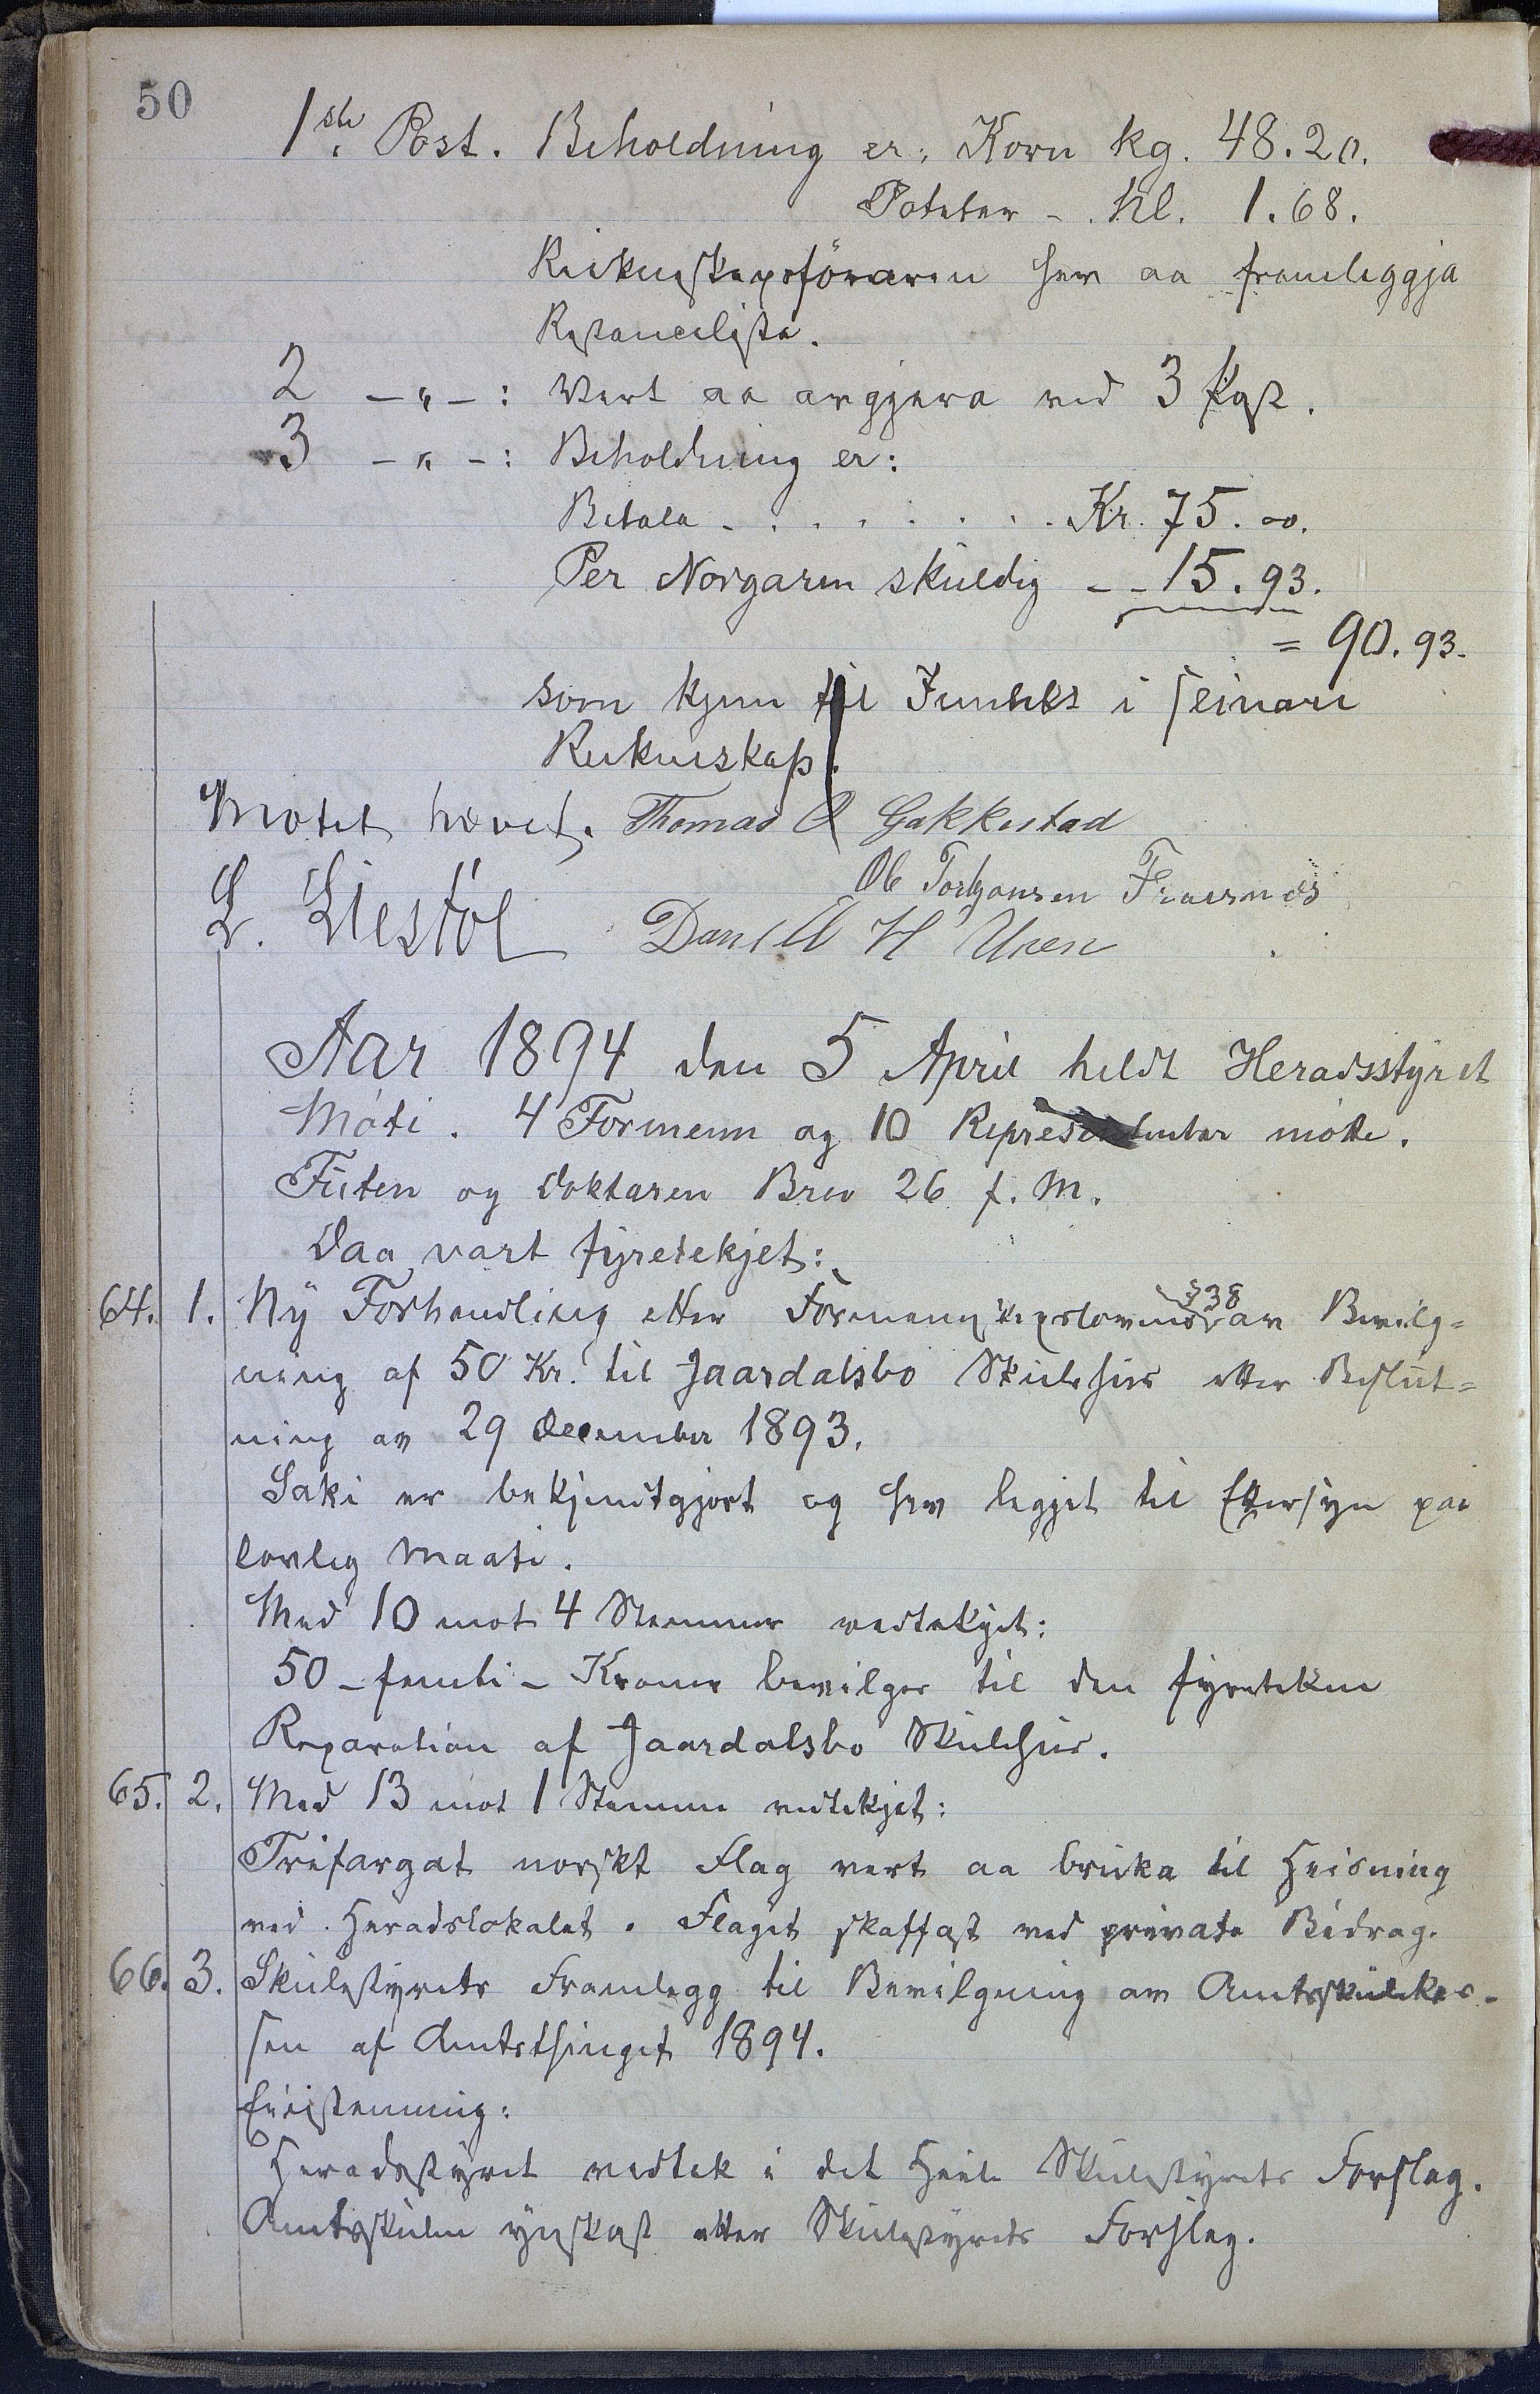 50
1ste Post. Beholdning er: Korn kg. 48.20.
Poteter - . hl. 1.68.
Rekneskapsföraren hev aa framleggja
Restancelista.
2 -"-: Vert aa avgjera ved 3 Post.
3 -"-: Beholdning er:
Betala - . . . . . . Kr. 75.00.
Per Norgaren skuldig - - 15.93.
= 90.93.
som kjem til Inntekt i seinare
Rekneskap.
Mötet hævet. Thomas O Gakkestad
Ole Torbjönsen Fraasnes
L. Liestöl Daniel H Uven
Aar 1894 den 5 April heldt Heradsstyret
Möte. 4 Formenn og 10 Representantar mötte.
Futen og doktaren Brev 26 f. M.
Daa vart fyretekjet:
64. 1. Ny Forhandling etter Formannskapslovens § 38 av Bevilg=
ning af 50 Kr. til Jaardalsbø Skulehus etter Beslut=
ning av 29 December 1893.
Saki er bekjendtgjort og hev leggjet til Ettersyn paa
lovleg Maate.
Med 10 mot 4 Stemmer vedtekjet:
50 - femti - Kroner bevilges til den fyretekne
Reparation af Jaardalsbø Skulehus.
65. 2. Med 13 mot 1 Stemme vedtekjet:
Trifargat norskt Flag vert aa bruka til Heisning
ved Heradslokalet. Flaget skaffast ved private Bidrag.
66. 3. Skulestyrets Framlegg til Bevilgning av Amtsskulekas-
sen af Amtsthinget 1894.
Einstemmig:
Heradsstyret vedtek i det Heile Skulestyrets Forslag.
Amtsskulen ynskast etter Skulestyrets Forslag.